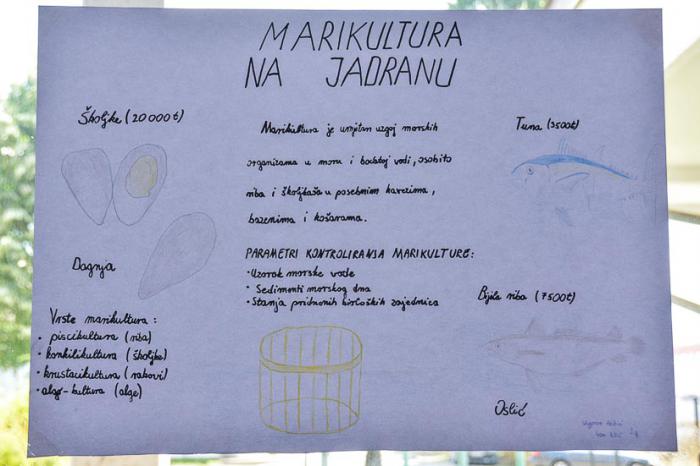 MARIKULTURA
NA JADRANU
Školjke (20 000 t)
Dagnja
Vrste marikultura:
• piscikultura (riba)
• konkilikultura (školjke)
• krustacikultura (rakovi)
• algo-kultura (alge)
Marikultura je umjetan uzgoj morskih
organizama u moru i bočatoj vodi, osobito
riba i školjkaša u posebnim kavezima,
bazenima i košarama.
PARAMETRI KONTROLIRANJA MARIKULTURE:
• Uzorak morske vode
• Sedimenti morskog dna
• Stanja pridnenih bioloških zajednica
Tuna (3500t)
Bijela riba (7500t)
Oslić